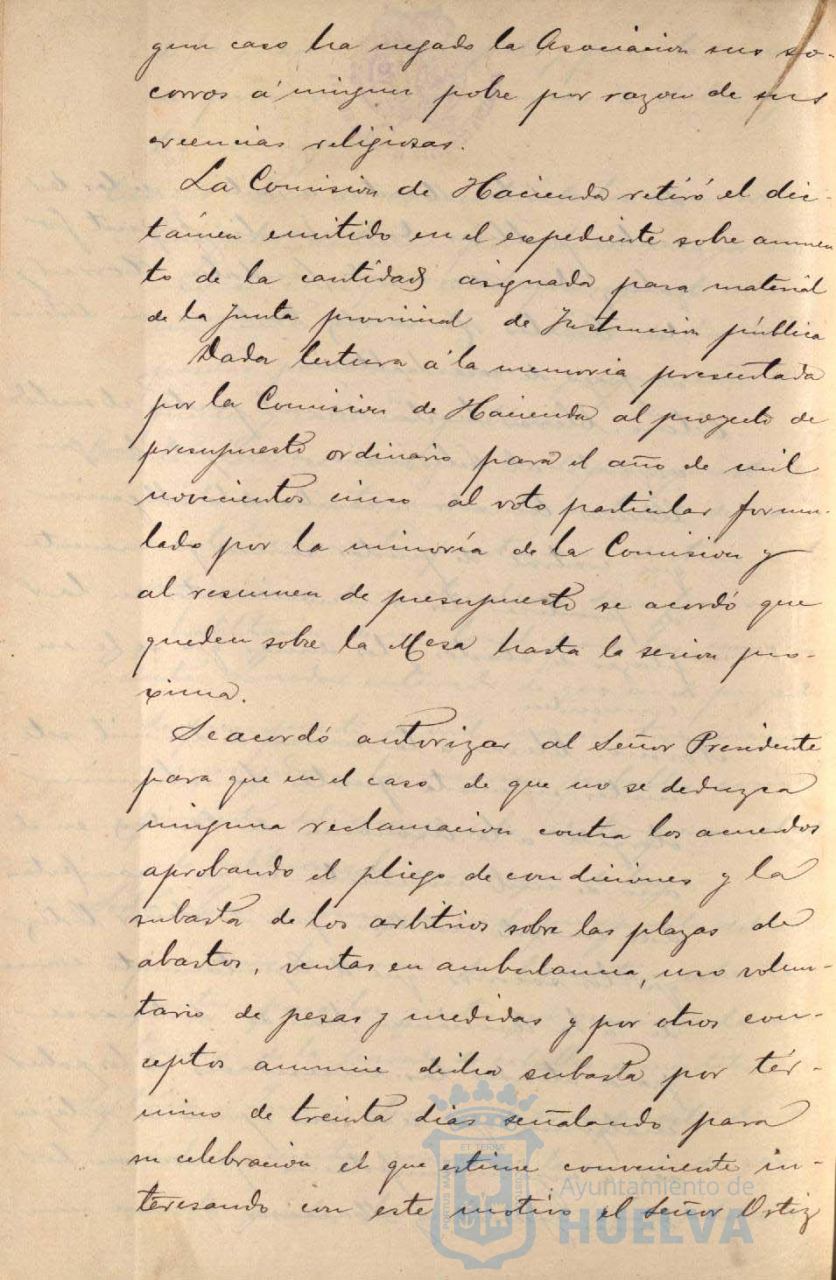 gun caso ha negado la Asociacion sus so-
corros á ningun pobre por razon de sus
creencias religiosas.
La Comision de Hacienda retiró el dic-
támen emitido en el expediente sobre aumen
to de la cantidad asignada para material
de la Junta provincial de Instruccion pública
Dada lectura á la memoria presentada
por la Comision de Hacienda al proyecto de
presupuesto ordinario para el año de mil
novecientos cinco al voto particular formu-
lado por la minoría de la Comision y
al resumen de presupuesto se acordó que
queden sobre la Mesa hasta la sesion pro-
xima.
Se acordó autorizar al Señor Presidente
para que en el caso de que no se deduzca
ninguna reclamacion contra los acuerdos
aprobando el pliego de condiciones y la
subasta de los arbitrios sobre las plazas de
abastos, ventas en ambulancia, uso volun-
tario de pesas y medidas y por otros con-
ceptos anuncie dicha subasta por tér-
mino de treinta dias señalando para
su celebracion el que estime conveniente in-
teresando con este motivo el Señor Ortiz
Ayuntamiento de
HUELVA